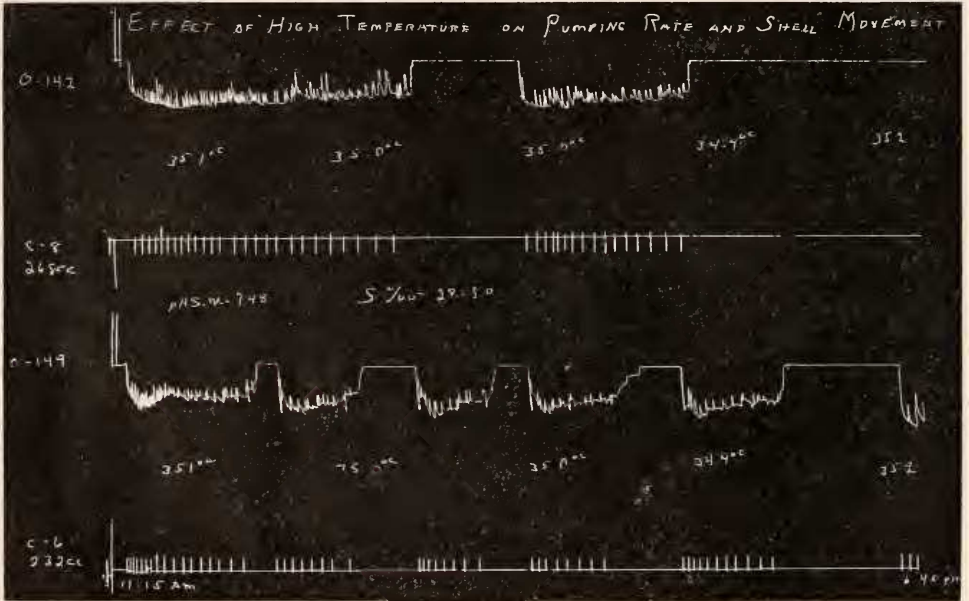 EFFECT OF HIGH TEMPERATURE ON PUMPING RATE AND SHELL MOVEMENT
O-142
35.1°C 35.0°C 35.0°C 34.9°C 35.2
C-8
268cc
pH S.W. - 7.48 S ‰ - 29.50
O-149
35.1°C 35.0°C 35.0°C 34.9°C 35.2
C-6
232cc
11:15 AM